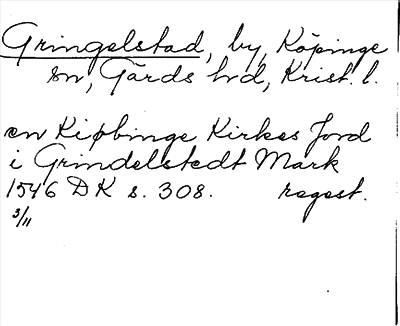 Gringelstad, by, Köpinge
sn, Gärds hd, Krist. l.
en Kiøbinge Kirkes Jord
i Grindelstedt Mark
1546 DK s. 308. regest.
3/11